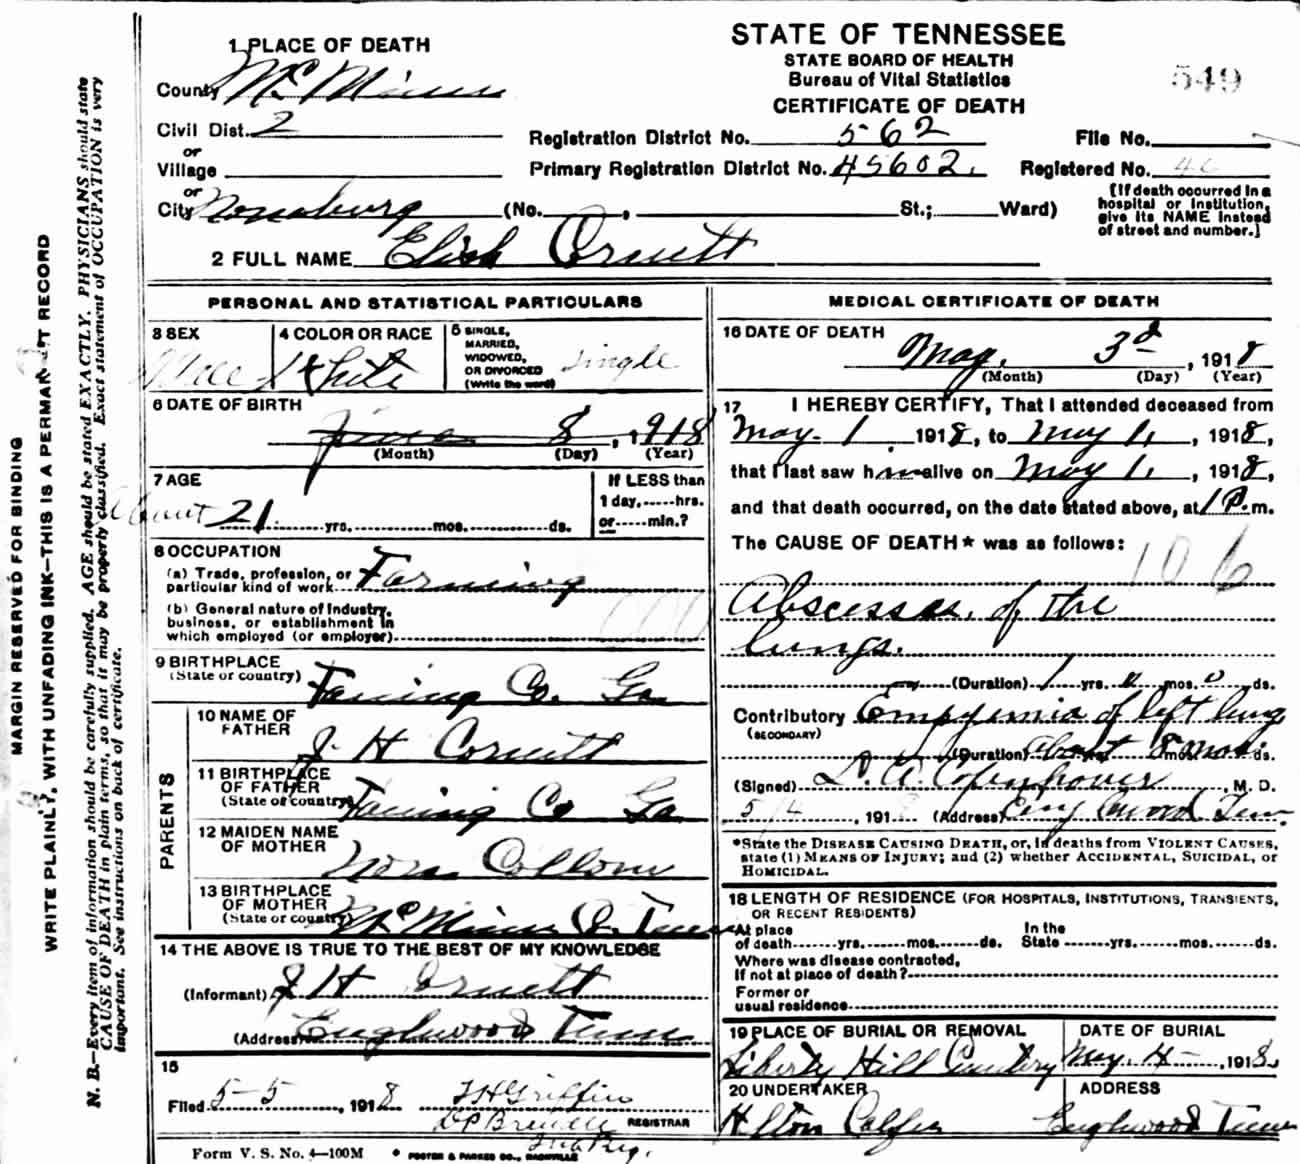 STATE OF TENNESSEE
STATE BOARD OF HEALTH
Bureau of Vital Statistics
CERTIFICATE OF DEATH
549
1 PLACE OF DEATH
County Mc Minn
Civil Dist. 2
or
Village
or
City
(No. , St.; Ward)
Registration District No. 562
Primary Registration District No. 45602.
File No.
Registered No. 46
[If death occurred in a
hospital or institution,
give its NAME instead
of street and number.]
2 FULL NAME
PERSONAL AND STATISTICAL PARTICULARS
3 SEX
Male
4 COLOR OR RACE
White
5 SINGLE,
MARRIED,
WIDOWED,
OR DIVORCED
(Write the word)
Single
6 DATE OF BIRTH
8, 1918
(Month) (Day) (Year)
7 AGE
About 21 yrs. mos. ds.
If LESS than
1 day, hrs.
or min.?
8 OCCUPATION
(a) Trade, profession, or
particular kind of work Farming
(b) General nature of Industry,
business, or establishment in
which employed (or employer)
9 BIRTHPLACE
(State or country)
Faning Co. Ga
PARENTS
10 NAME OF
FATHER
J H
11 BIRTHPLACE
OF FATHER
(State or country)
Faning Co Ga
12 MAIDEN NAME
OF MOTHER
13 BIRTHPLACE
OF MOTHER
(State or country)
Mc Minn Co. Tenn
14 THE ABOVE IS TRUE TO THE BEST OF MY KNOWLEDGE
(Informant) J H
(Address) Englewood Tenn
15
Filed 5-5, 1918
T H Griffin
REGISTRAR
Form V. S. No. 4—100M
FOSTER & PARKES CO., NASHVILLE
MEDICAL CERTIFICATE OF DEATH
16 DATE OF DEATH
May. 3d, 1918
(Month) (Day) (Year)
17 I HEREBY CERTIFY, That I attended deceased from
May 1 1918, to May 1, 1918,
that I last saw him alive on May 1, 1918,
and that death occurred, on the date stated above, at 1 P. m.
The CAUSE OF DEATH* was as follows:
106
Abscesses of the
lungs.
(Duration) 1 yrs. mos. ds.
Contributory Empyemia of left lung
(SECONDARY)
(Duration) About 8 mos. ds.
(Signed) L. A. Copenhaver, M. D.
5/4, 1918 (Address) Englewood Tenn.
*State the DISEASE CAUSING DEATH, or, in deaths from VIOLENT CAUSES,
state (1) MEANS OF INJURY; and (2) whether ACCIDENTAL, SUICIDAL, or
HOMICIDAL.
18 LENGTH OF RESIDENCE (FOR HOSPITALS, INSTITUTIONS, TRANSIENTS,
OR RECENT RESIDENTS)
At place
of death yrs. mos. ds.
In the
State yrs. mos. ds.
Where was disease contracted,
if not at place of death?
Former or
usual residence
19 PLACE OF BURIAL OR REMOVAL
Liberty Hill
DATE OF BURIAL
May. 4 1918.
20 UNDERTAKER
ADDRESS
Englewood Tenn
MARGIN RESERVED FOR BINDING
WRITE PLAINLY, WITH UNFADING INK—THIS IS A PERMANENT RECORD
N. B.—Every item of information should be carefully supplied. AGE should be stated EXACTLY. PHYSICIANS should state
CAUSE OF DEATH in plain terms, so that it may be properly classified. Exact statement of OCCUPATION is very
important. See instructions on back of certificate.